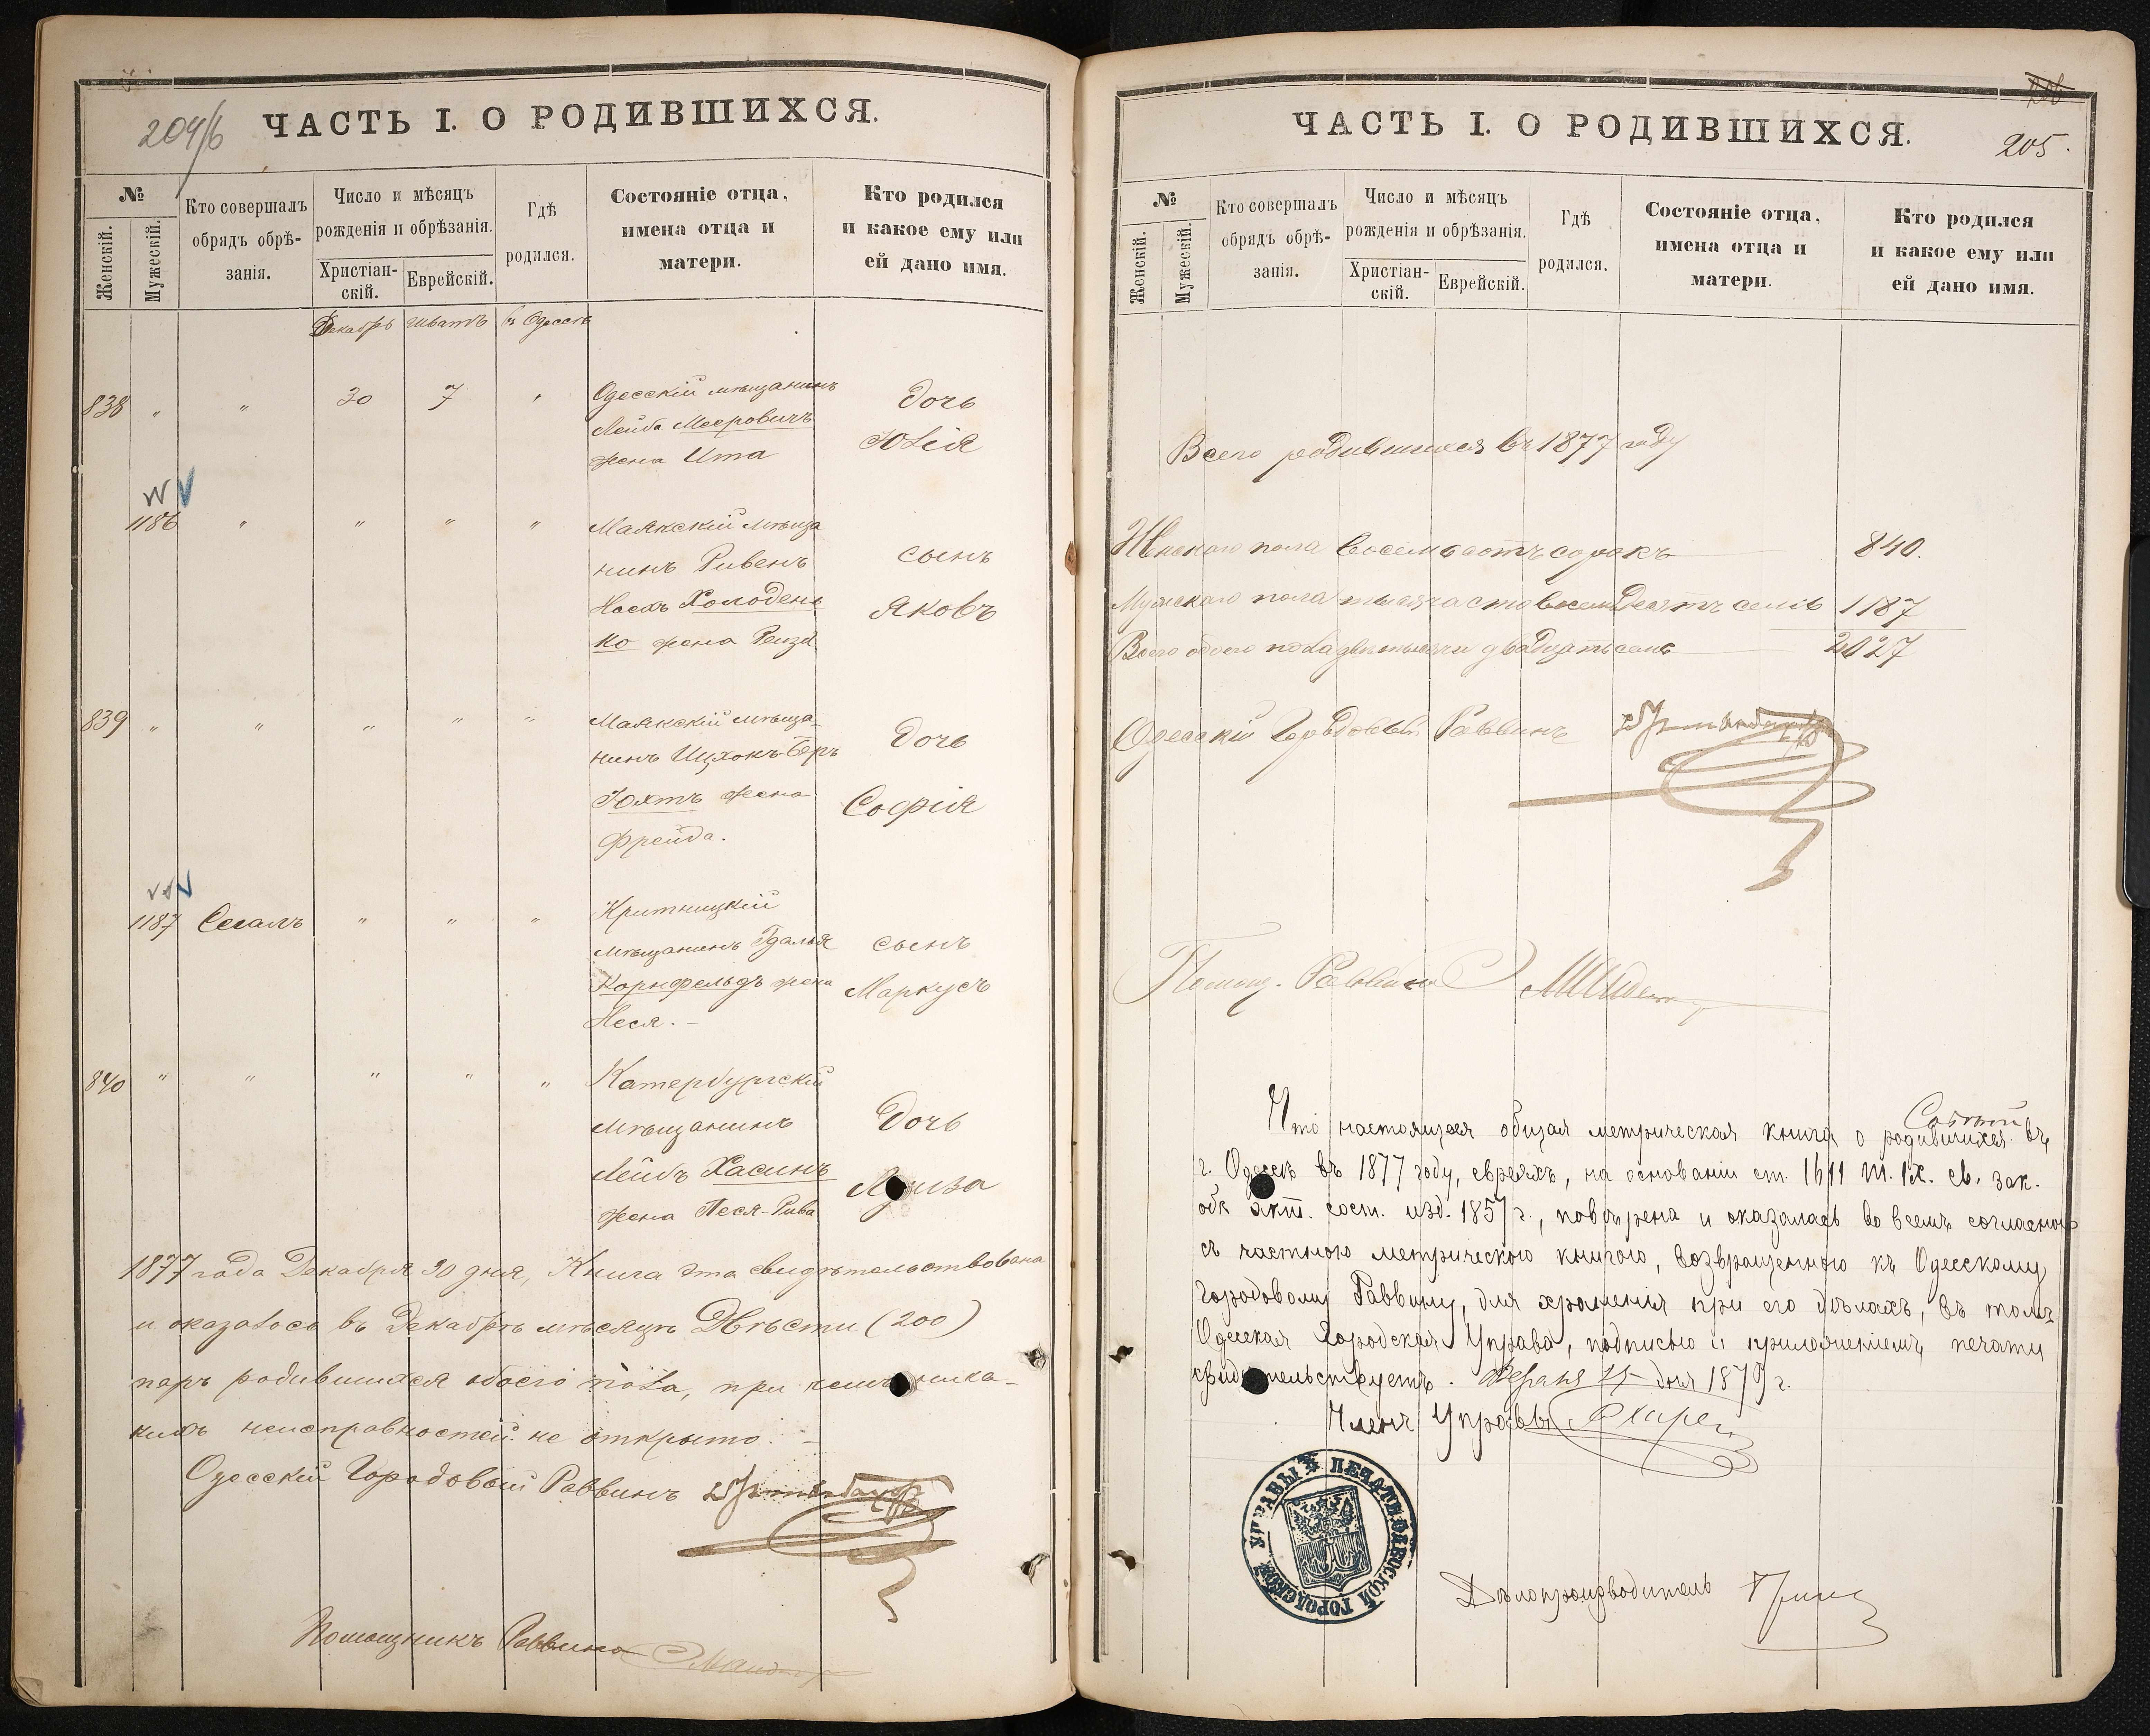 204/б
ЧАСТЬ I. О РОДИВШИХСЯ.
№
Женскій.
Мужескій.
Кто совершалъ
обрядъ обрѣ-
занія.
Число и мѣсяцъ
рожденія и обрѣзанія.
Христіан-
скій.
Еврейскій.
Гдѣ
родился.
Состояніе отца,
имена отца и
матери.
Кто родился
и какое ему или
ей дано имя.
Декабрь Шватъ въ Одессѣ
838 " " 30 7 "
Одесскій мѣщанинъ
Лейба Мееровичъ
жена Ита
Дочь
Юлія
1186 " " " "
Маякскій мѣща
нинъ Рувенъ
Носъ Холоденъ
ко жена Рейзя
сынъ
Яковъ
839 " " " " "
Маякскій мѣща-
нинъ Ицхокъ-Беръ
Гохтъ жена
Фрейда.
Дочь
Софія
1187 Сегалъ " " "
мѣщанинъ Гдалья
Корнфельдъ жена
Неся. -
сынъ
Маркусъ
840 " " " " "
Катербургскій
мѣщанинъ
Лейбъ Хасинъ
жена Песя-Рива
Дочь
Луиза
1877 года Декабря 30 дня, Книга эта свидѣтельствована
и оказалось въ Декабрѣ мѣсяцѣ Двѣсти (200)
паръ родившихся обоего пола, при чемъ ника-
кихъ неисправностей не открыто. -
Одесскій Городовый Раввинъ
Помощникъ Раввина
ЧАСТЬ I. О РОДИВШИХСЯ.
205.
№
Женскій.
Мужескій.
Кто совершалъ
обрядъ обрѣ-
занія.
Число и мѣсяцъ
рожденія и обрѣзанія.
Христіан-
скій.
Еврейскій.
Гдѣ
родился.
Состояніе отца,
имена отца и
матери.
Кто родился
и какое ему или
ей дано имя.
Всего родившихся въ 1877 году
Женскаго пола восемьсотъ сорокъ 840.
Мужскаго пола тысяча сто восемьдесятъ семь 1187
Всего обоего пола двѣ тысячи двадцать семь 2027
Одесскій Городовый Раввинъ
Помощ. Раввина
Что настоящая общая метрическая книга о родившихся въ
г. Одессѣ въ 1877 году, евреяхъ, на основаніи ст. 1611 т. IX. св. зак.
объ акт. сост. изд. 1857 г., повѣрена и оказалась во всемъ согласною
съ частною метрическою книгою, возвращенною къ Одесскому
Городовому Раввину, для храненія при его дѣлахъ, въ томъ
Одесская Городская Управа, подписью и приложеніемъ печати
свидѣтельствуетъ. Февраля 25 дня 1879 г.
Членъ Управы
ПЕЧАТЬ ОДЕССКОЙ ГОРОДСКОЙ УПРАВЫ
Дѣлопроизводитель